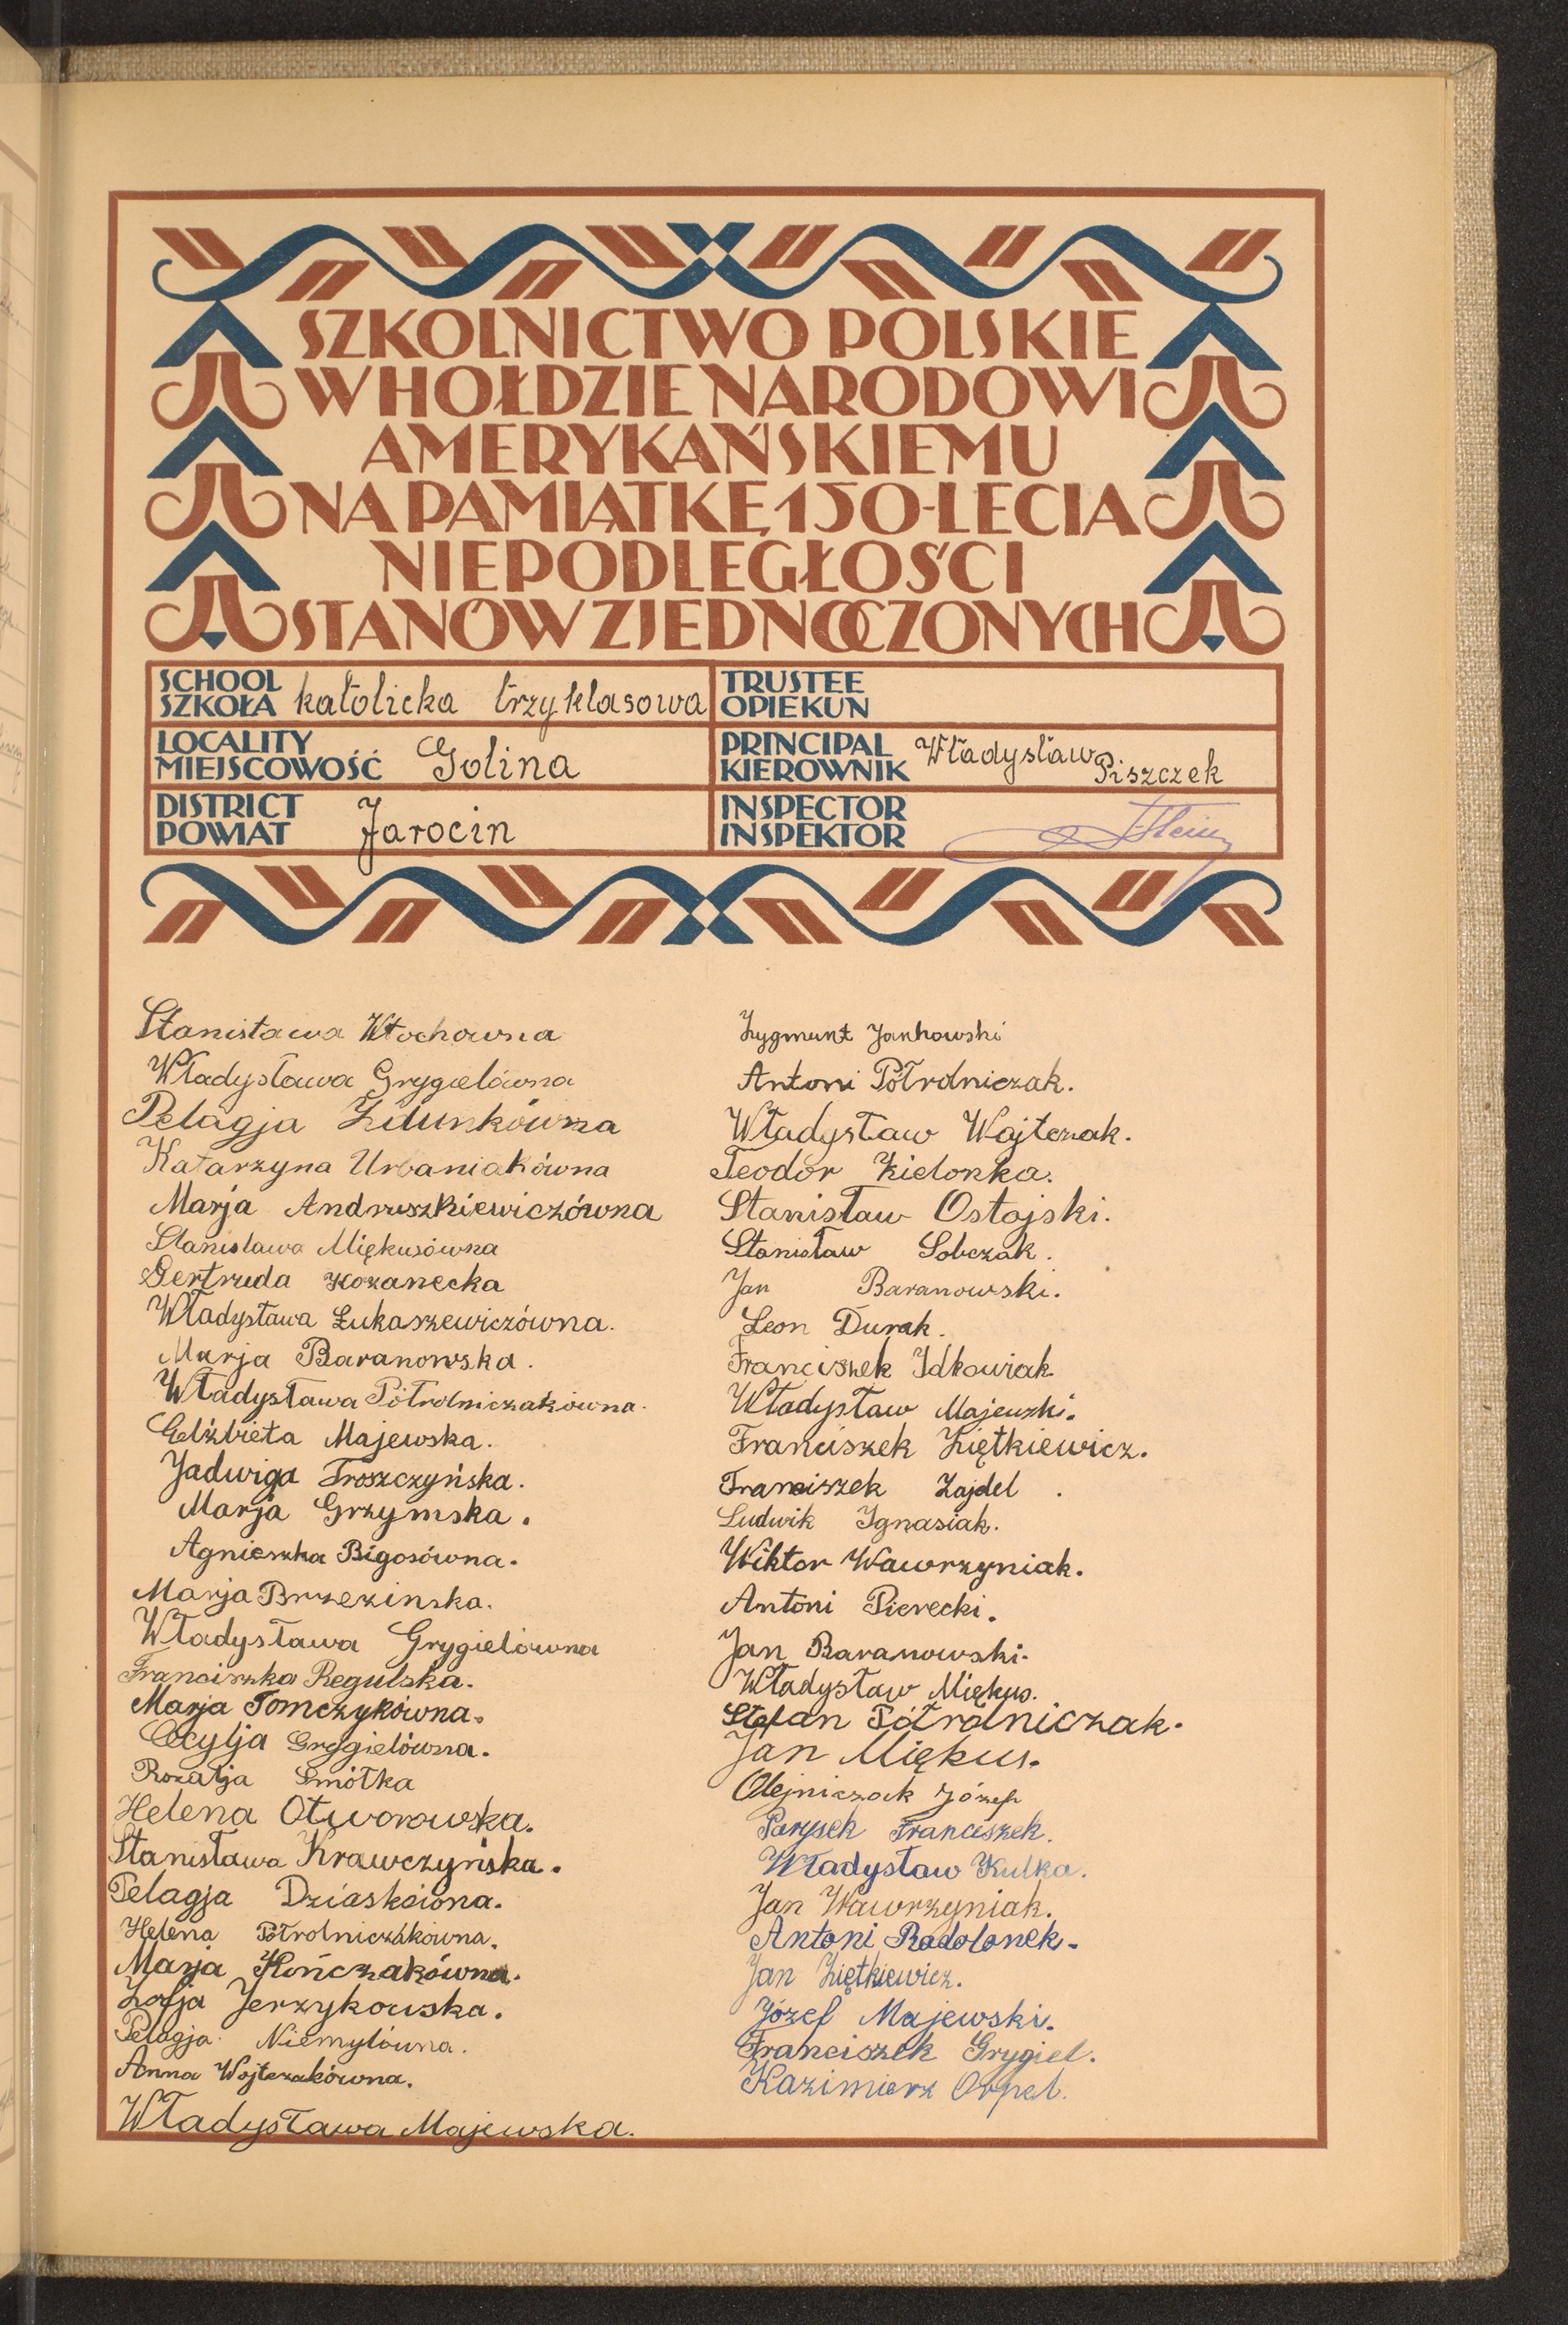 SZKOLNICTWO POLSKIE
W HOŁDZIE NARODOWI
AMERYKAŃSKIEMU
NA PAMIĄTKĘ 150-LECIA
NIEPODLEGŁOŚCI
STANÓW ZJEDNOCZONYCH
SCHOOL
SZKOŁA katolicka trzyklasowa
TRUSTEE
OPIEKUN
LOCALITY
MIEJSCOWOŚĆ Golina
PRINCIPAL
KIEROWNIK Władysław Piszczek
DISTRICT
POWIAT Jarocin
INSPECTOR
INSPEKTOR
Stanisława Włochowna
Władysława Grygielówna
Pelagja Zdunkówna
Katarzyna Urbaniakówna
Marja Andruszkiewiczówna
Stanislawa Miękusówna
Gertruda Kozanecka
Władysława Łukaszewiczówna.
Marja Baranowska.
Władysława Półrolniczakówna.
Elżbieta Majewska.
Jadwiga Troszczyńska.
Marja Grzymska.
Agnieszka Bigosówna.
Marja Brzezinska.
Władysława Grygielówna
Franciszka Regulska.
Marja Tomczykówna.
Cecylja Grygielówna.
Rozalja Smółka
Helena Otworowska.
Stanisława Krawczyńska.
Pelagja
Helena Półrolniczakówna.
Marja Kończakówna.
Zofja Jerzykowska.
Pelagja Niemylówna.
Anna Wojtczakówna.
Władysława Majewska.
Zygmunt Jankowski
Antoni Półrolniczak.
Władysław Wojtczak.
Teodor Zielonka.
Stanisław Ostojski.
Stanisław Sobczak.
Jan Baranowski.
Leon Durak.
Franciszek Idkowiak
Władysław Majewski.
Franciszek Ziętkiewicz.
Franciszek Zajdel.
Ludwik Ignasiak.
Wiktor Wawrzyniak.
Antoni Pierecki.
Jan Baranowski.
Władysław Miękus.
Stefan Półrolniczak.
Jan Miękus.
Olejniczak Józef
Parysek Franciszek.
Władysław Kulka.
Jan Wawrzyniak.
Antoni Radolonek.
Jan Ziętkiewicz.
Józef Majewski.
Franciszek Grygiel.
Kazimierz Orpel.